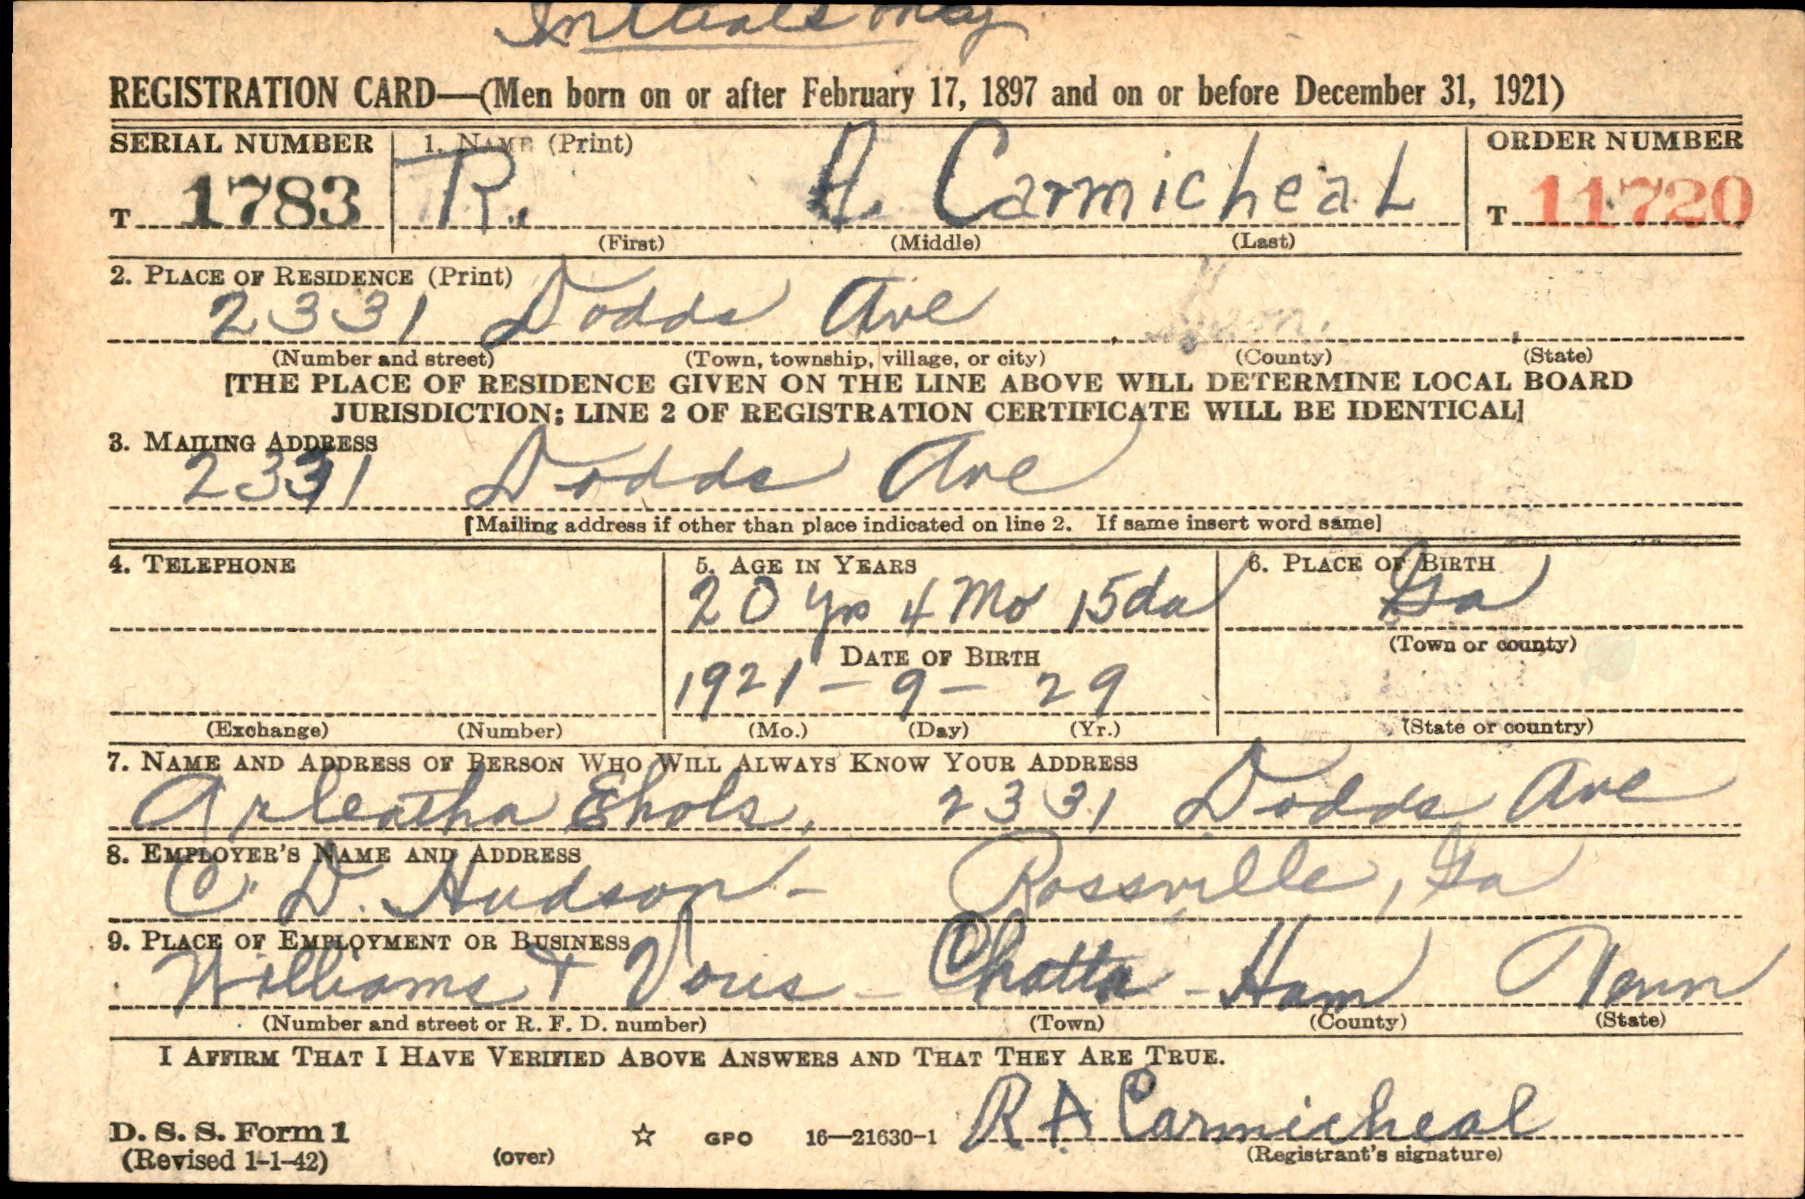 Initials only
REGISTRATION CARD—(Men born on or after February 17, 1897 and on or before December 31, 1921)
SERIAL NUMBER 1. NAME (Print) ORDER NUMBER
T 1783 R. A. Carmicheal T 11720
(First) (Middle) (Last)
2. PLACE OF RESIDENCE (Print)
2331 Dodds Ave
(Number and street) (Town, township, village, or city) (County) (State)
[THE PLACE OF RESIDENCE GIVEN ON THE LINE ABOVE WILL DETERMINE LOCAL BOARD
JURISDICTION; LINE 2 OF REGISTRATION CERTIFICATE WILL BE IDENTICAL]
3. MAILING ADDRESS
2331 Dodds Ave
[Mailing address if other than place indicated on line 2. If same insert word same]
4. TELEPHONE 5. AGE IN YEARS 6. PLACE OF BIRTH
20 yrs 4 Mo 15 da Ga
DATE OF BIRTH (Town or county)
1921 - 9 - 29
(Exchange) (Number) (Mo.) (Day) (Yr.) (State or country)
7. NAME AND ADDRESS OF PERSON WHO WILL ALWAYS KNOW YOUR ADDRESS
Arleatha Ehols, 2331 Dodds Ave
8. EMPLOYER'S NAME AND ADDRESS
C. D. Hudson - Rossville, Ga
9. PLACE OF EMPLOYMENT OR BUSINESS
Williams & Voris - Chatta - Ham Tenn
(Number and street or R. F. D. number) (Town) (County) (State)
I AFFIRM THAT I HAVE VERIFIED ABOVE ANSWERS AND THAT THEY ARE TRUE.
R A Carmicheal
D. S. S. Form 1 GPO 16—21630-1
(Revised 1-1-42) (over) (Registrant's signature)